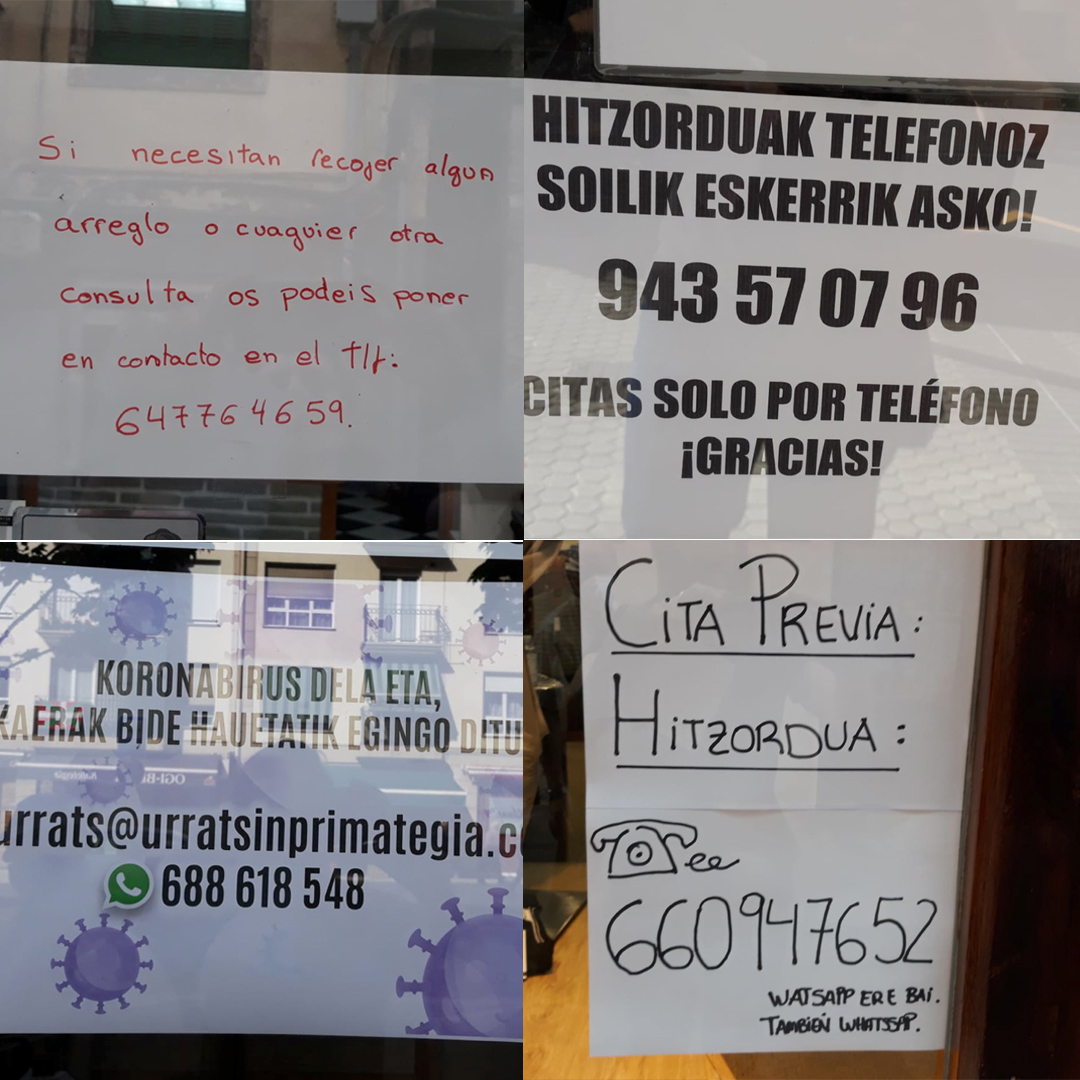 Si necesitan recojer algun
arreglo o cuaquier otra
consulta os podeis poner
en contacto en el tlf:
647764659.
HITZORDUAK TELEFONOZ
SOILIK ESKERRIK ASKO!
943 57 07 96
CITAS SOLO POR TELÉFONO
¡GRACIAS!
KORONABIRUS DELA ETA,
KAERAK BIDE HAUETATIK EGINGO DITU
urrats@urratsinprimategia.co
688 618 548
CiTA PREViA:
HiTZORDUA:
660947652
WATSAPP ERE BAi.
TAMBIEN WHATSSAP.